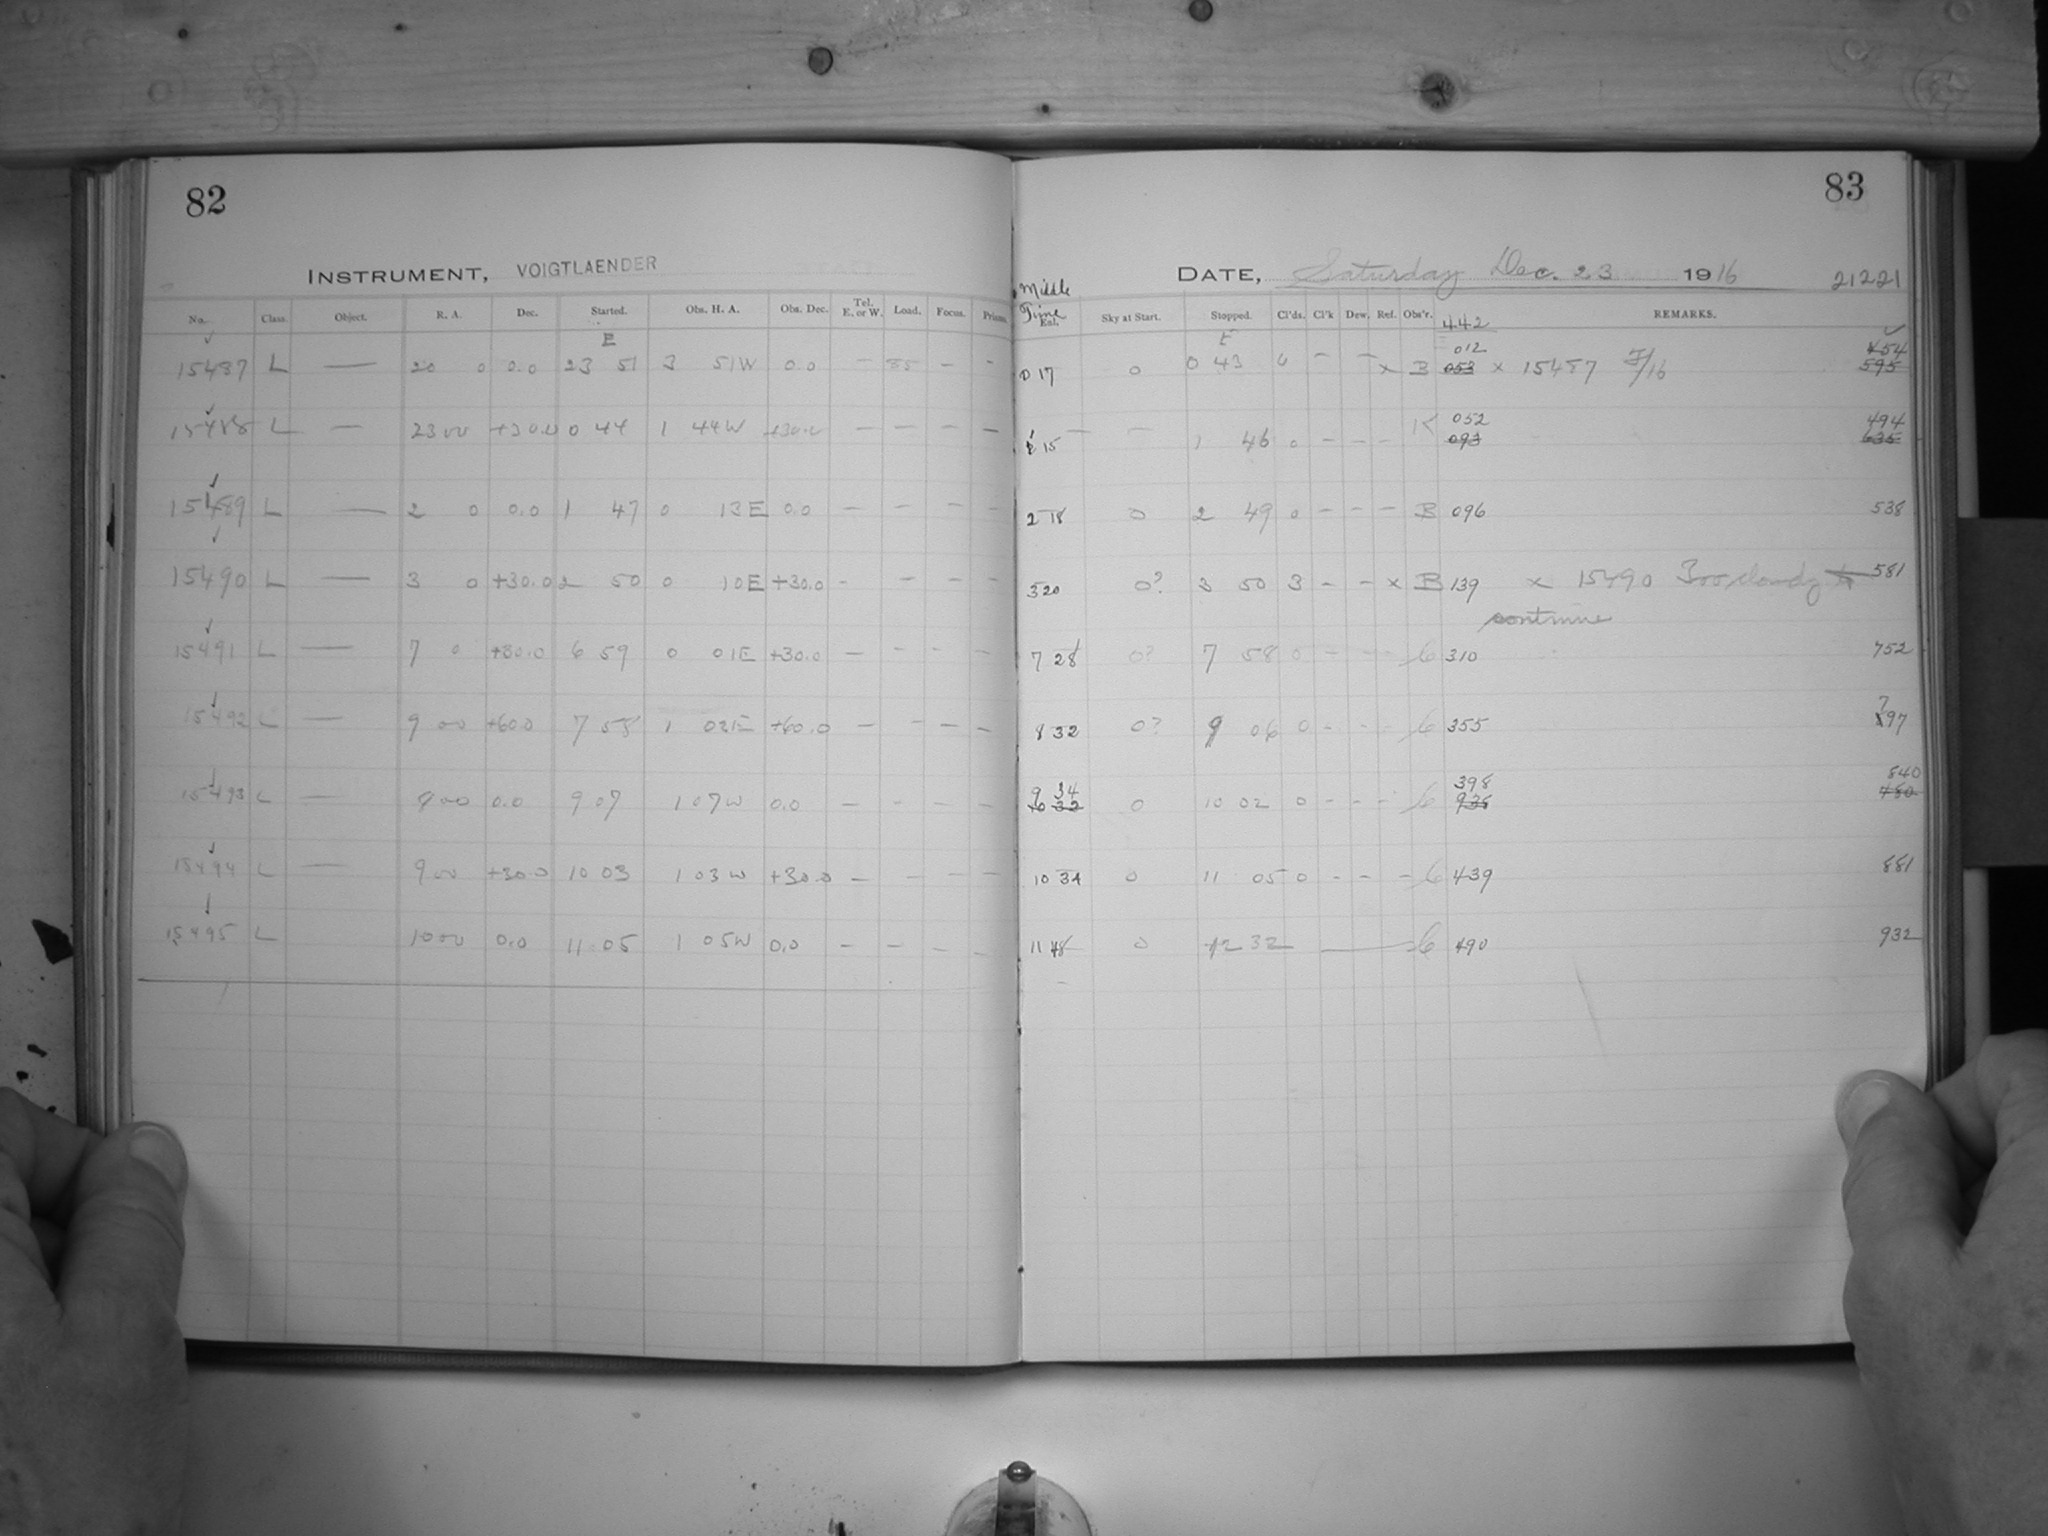 82
83
INSTRUMENT, VOIGTLAENDER
DATE, Saturday Dec. 23 1916 21221
No. Class. Object. R. A. Dec. Started. Obs. H. A. Obs. Dec. Tel. E. or W. Load. Focus. Prisms. Middle Time Ext. Sky at Start. Stopped. Cl'ds. Cl'k Dew. Ref. Obs'r. 442 REMARKS.
E E
15487 L — 20 0 0.0 23 51 3 51W 0.0 — — - 0 17 0 0 43 0 — — x B 012 053 x 15487 F/16 454 595
15488 L — 23 00 +30.0 0 44 1 44W +30.0 — — — — 1 15 — — 1 46 0 - - - K 052 093 494 635
15489 L — 2 0 0.0 1 47 0 13E 0.0 — — — — 2 18 0 2 49 0 - - - B 096 538
15490 L — 3 0 +30.0 2 50 0 10E +30.0 - — — — 3 20 0? 3 50 3 - - x B 139 x 15490 Too cloudy to 581
continue
15491 L — 7 0 +30.0 6 59 0 01E +30.0 — — - — 7 28 0? 7 58 0 - - - 310 752
15492 L — 9 00 +60.0 7 58 1 02E +60.0 — - — — 8 32 0? 9 06 0 - - - 355 797
15493 L — 00 0.0 9 07 1 07W 0.0 — - — — 9 34 10 32 0 10 02 0 - - - 398 840 480
15494 L — 9 00 +30.0 10 03 1 03W +30.0 — - — — 10 34 0 11 05 0 - - - 439 881
15495 L 10 00 0.0 11 05 1 05W 0.0 — — — — 11 48 0 12 32 — 490 932